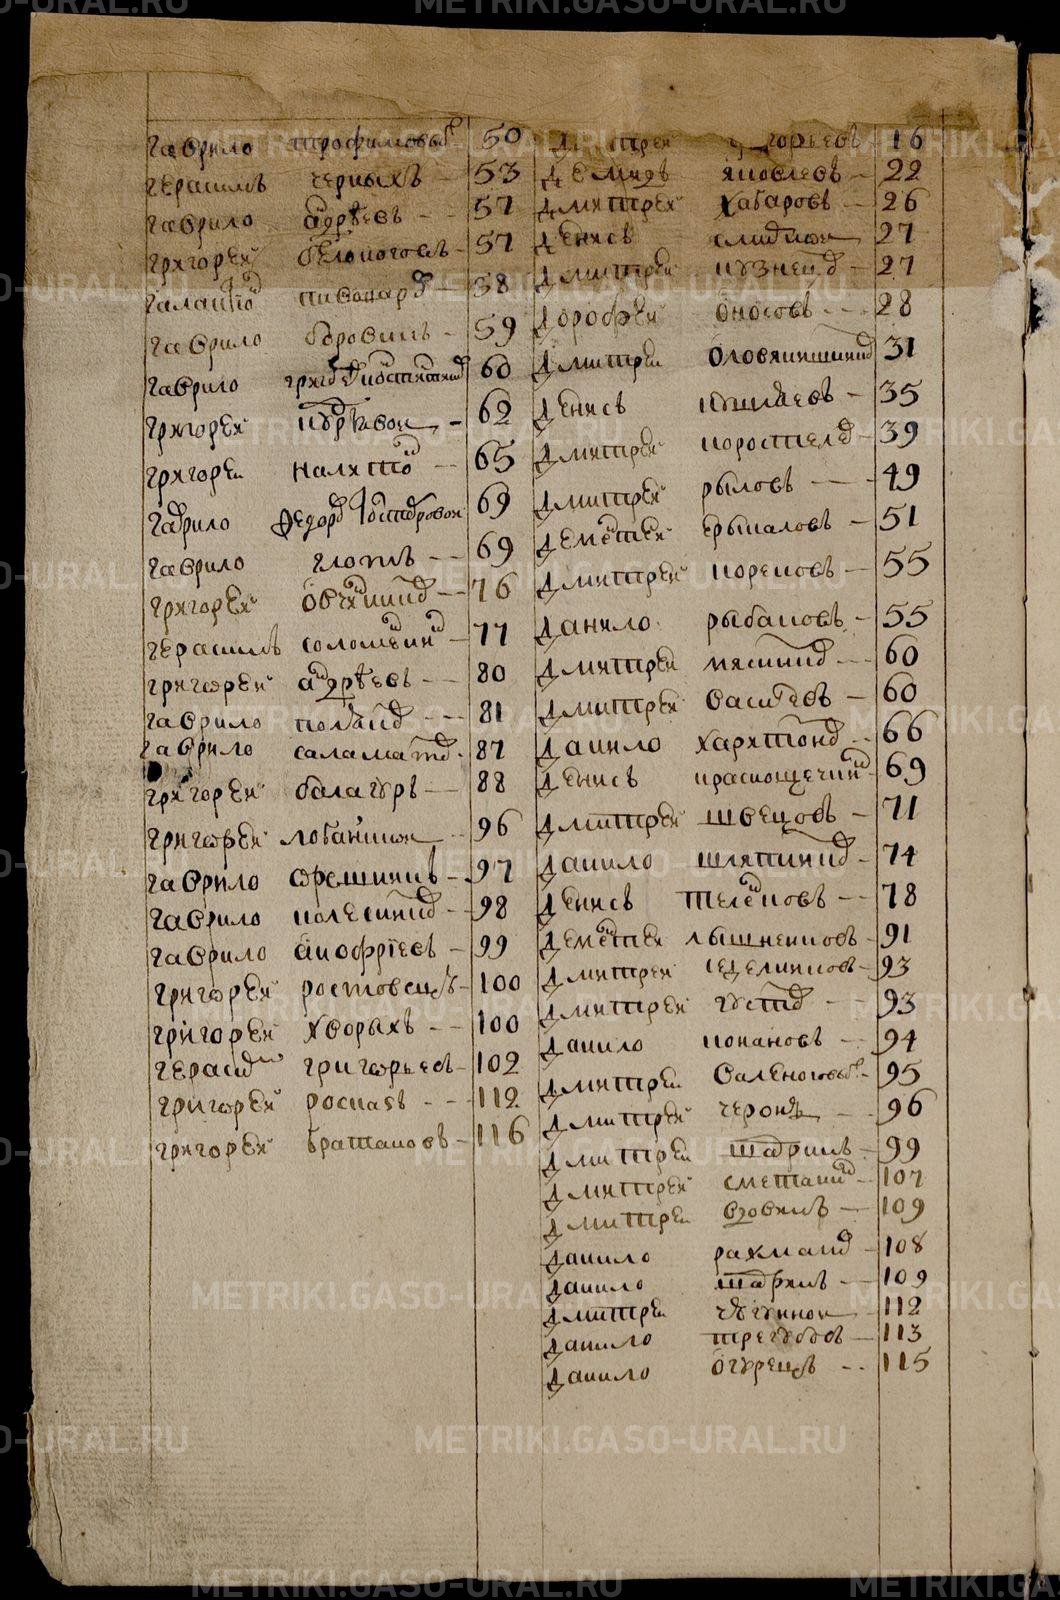 METRIKI.GASO-URAL.RU
Гаврило трофимовыхъ 50
герасимъ черныхъ 53
гаврило андрѣевъ 57
григорей бѣлоноговъ 57
галактион пивоваров 58
гаврило боровинъ 59
гаврило 60
григорей 62
григорей налѣтов 65
гаврило федоров 69
гаврило глотъ 69
григорей овчинник 76
герасимъ соломеин 77
григорей андрѣевъ 80
гаврило 81
гаврило саламатов 87
григорей балагуръ 88
григорей лобанцион 96
гаврило орешнинъ 97
гаврило колесников 98
гаврило анофрїевъ 99
григорей ростовецъ 100
григорей хворыхъ 100
герасим григорьевъ 102
григорей 112
григорей братановъ 116
Дмитрей григорьевъ 16
Демидъ яковлевъ 22
Дмитрей хабаровъ 26
Денисъ 27
Дмитрей кузнецов 27
Дорофей оносовъ 28
Дмитрей оловянишников 31
Денисъ 35
Дмитрей коростелев 39
Дмитрей рыловъ 49
Дементей ермаловъ 51
Дмитрей кореновъ 55
Данило рыбаковъ 55
Дмитрей мясников 60
Дмитрей василевъ 60
Данило харитонов 66
Денисъ краснощечин 69
Дмитрей швецовъ 71
Данило шляпников 74
Денисъ телѣнковъ 78
Дементей 91
Дмитрей седелниковъ 93
Дмитрей густов 93
Данило конановъ 94
Дмитрей 95
Дмитрей 96
Дмитрей шадринъ 99
Дмитрей сметанин 107
Дмитрей вдовинъ 109
Данило рахманов 108
Данило шадринъ 109
Дмитрей 112
Данило трегубовъ 113
Данило огурецъ 115